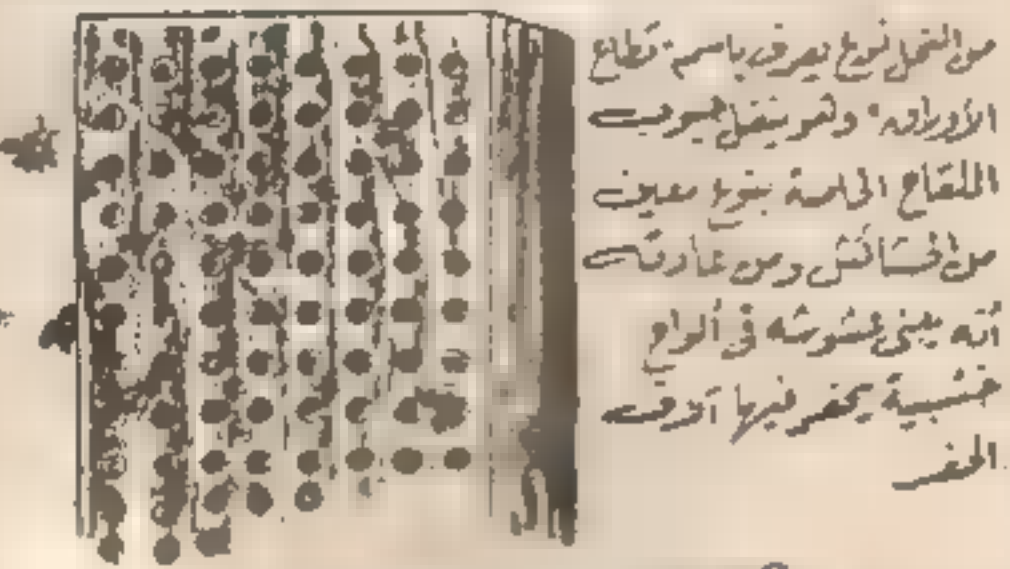 من النحل نوع يعرف باسم قطاع
الأوراق وهو ينقل حبوب
اللقاح الخاصة بنوع معين
من الحشائش ومن عادته
أنه يبنى عشوشه فى ألواح
خشبية يحفر فيها آلاف
الحفر